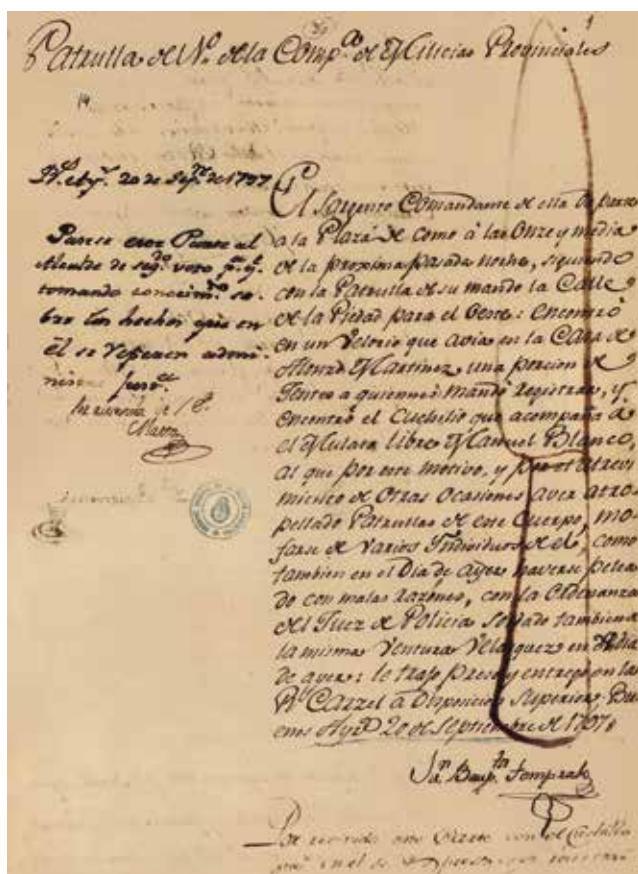 Patrulla de N.º de la Comp.ª de Milicias Provinciales
19
20 de Sep.re de 1797
Pasese este Parte al
Alcalde de seg.do voto p.ª q.e
tomando conocim.to so-
bre los hechos que en
el se refieren admi-
nistre just.ª
El Sargento Comandante de ella Da parte
a la Plaza de como à las Onze y media
de la proxima pasada noche, siguiendo
con la Patrulla de su mando la Calle
de la Piedad para el Oeste: encontró
en un Velorio que avia en la Casa de
Alonzo Martinez una porcion de
Gentes a quienes mandó registrar, y
encontró el Cuchillo que acompaña á
el Mulato libre Manuel Blanco,
al que por este motivo, y por el atrevi
miento de otras ocasiones aver atro
pellado Patrullas de este Cuerpo, mo
farse de varios Individuos de el, como
tambien en el Dia de ayer haverse pelea
do con malas razones, con la Ordenanza
del Juez de Policia Soldado tambien de
la misma Ventura Velasquez en el dia
de ayer: le trajo preso y entregó en la
R.l Carzel a Disposicion Superior, Bu
enos Ay.s 20 de Septiembre de 1797
J.n Baup.ta
este Parte con el Cuchillo